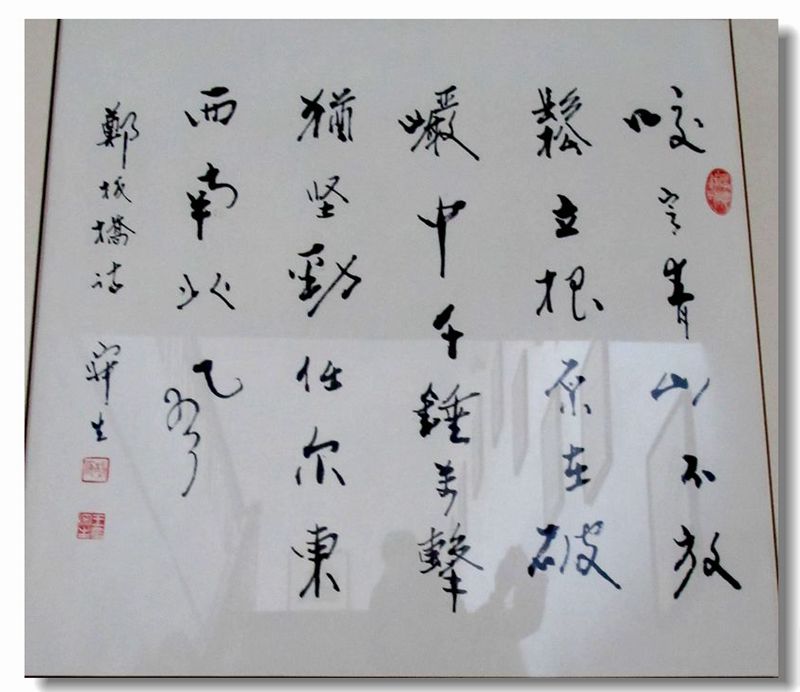 咬定青山不放
鬆立根原在破
巖中千錘萬擊
猶坚勁任尔東
西南北風
鄭板橋詩 生